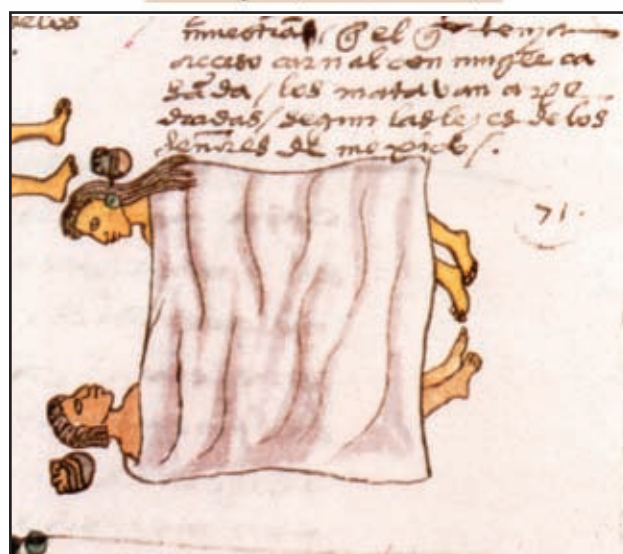 muestran / q̄ el q̄ tenya
acceso carnal con muger ca
sada / los matavan a pe
dradas / segun las leyes de los
señores de mexico /.
71.